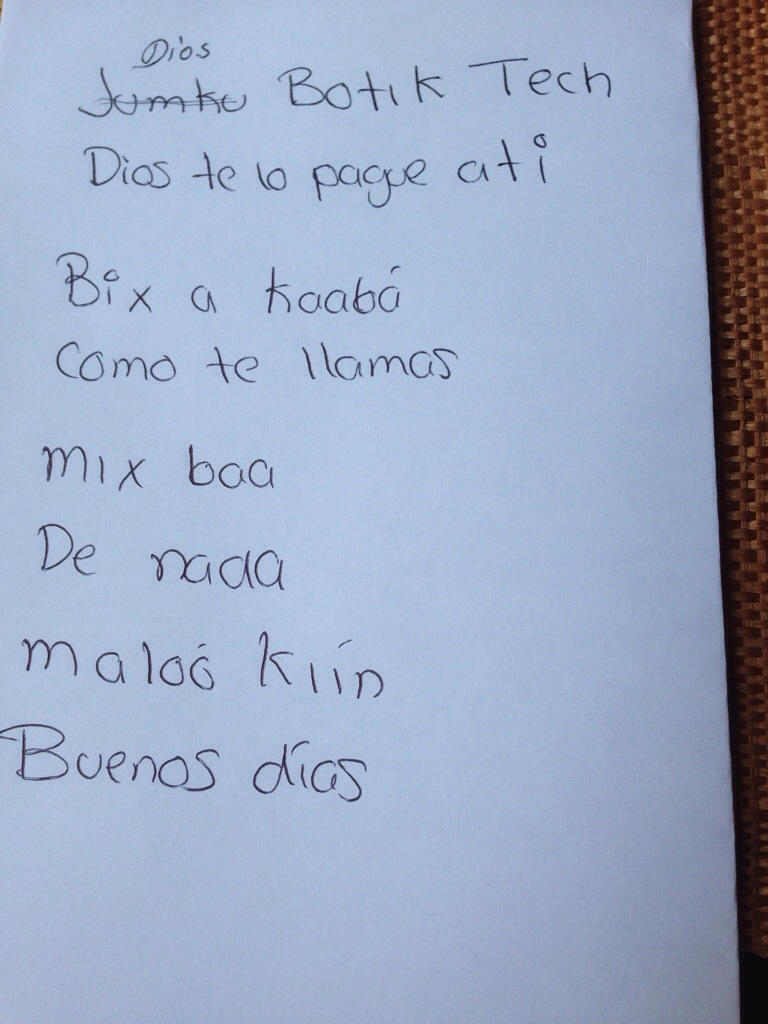 Dios
Jumku Botik Tech
Dios te lo pague ati
Bix a kaabá
Como te llamas
mix baa
De nada
maloó kiín
Buenos días